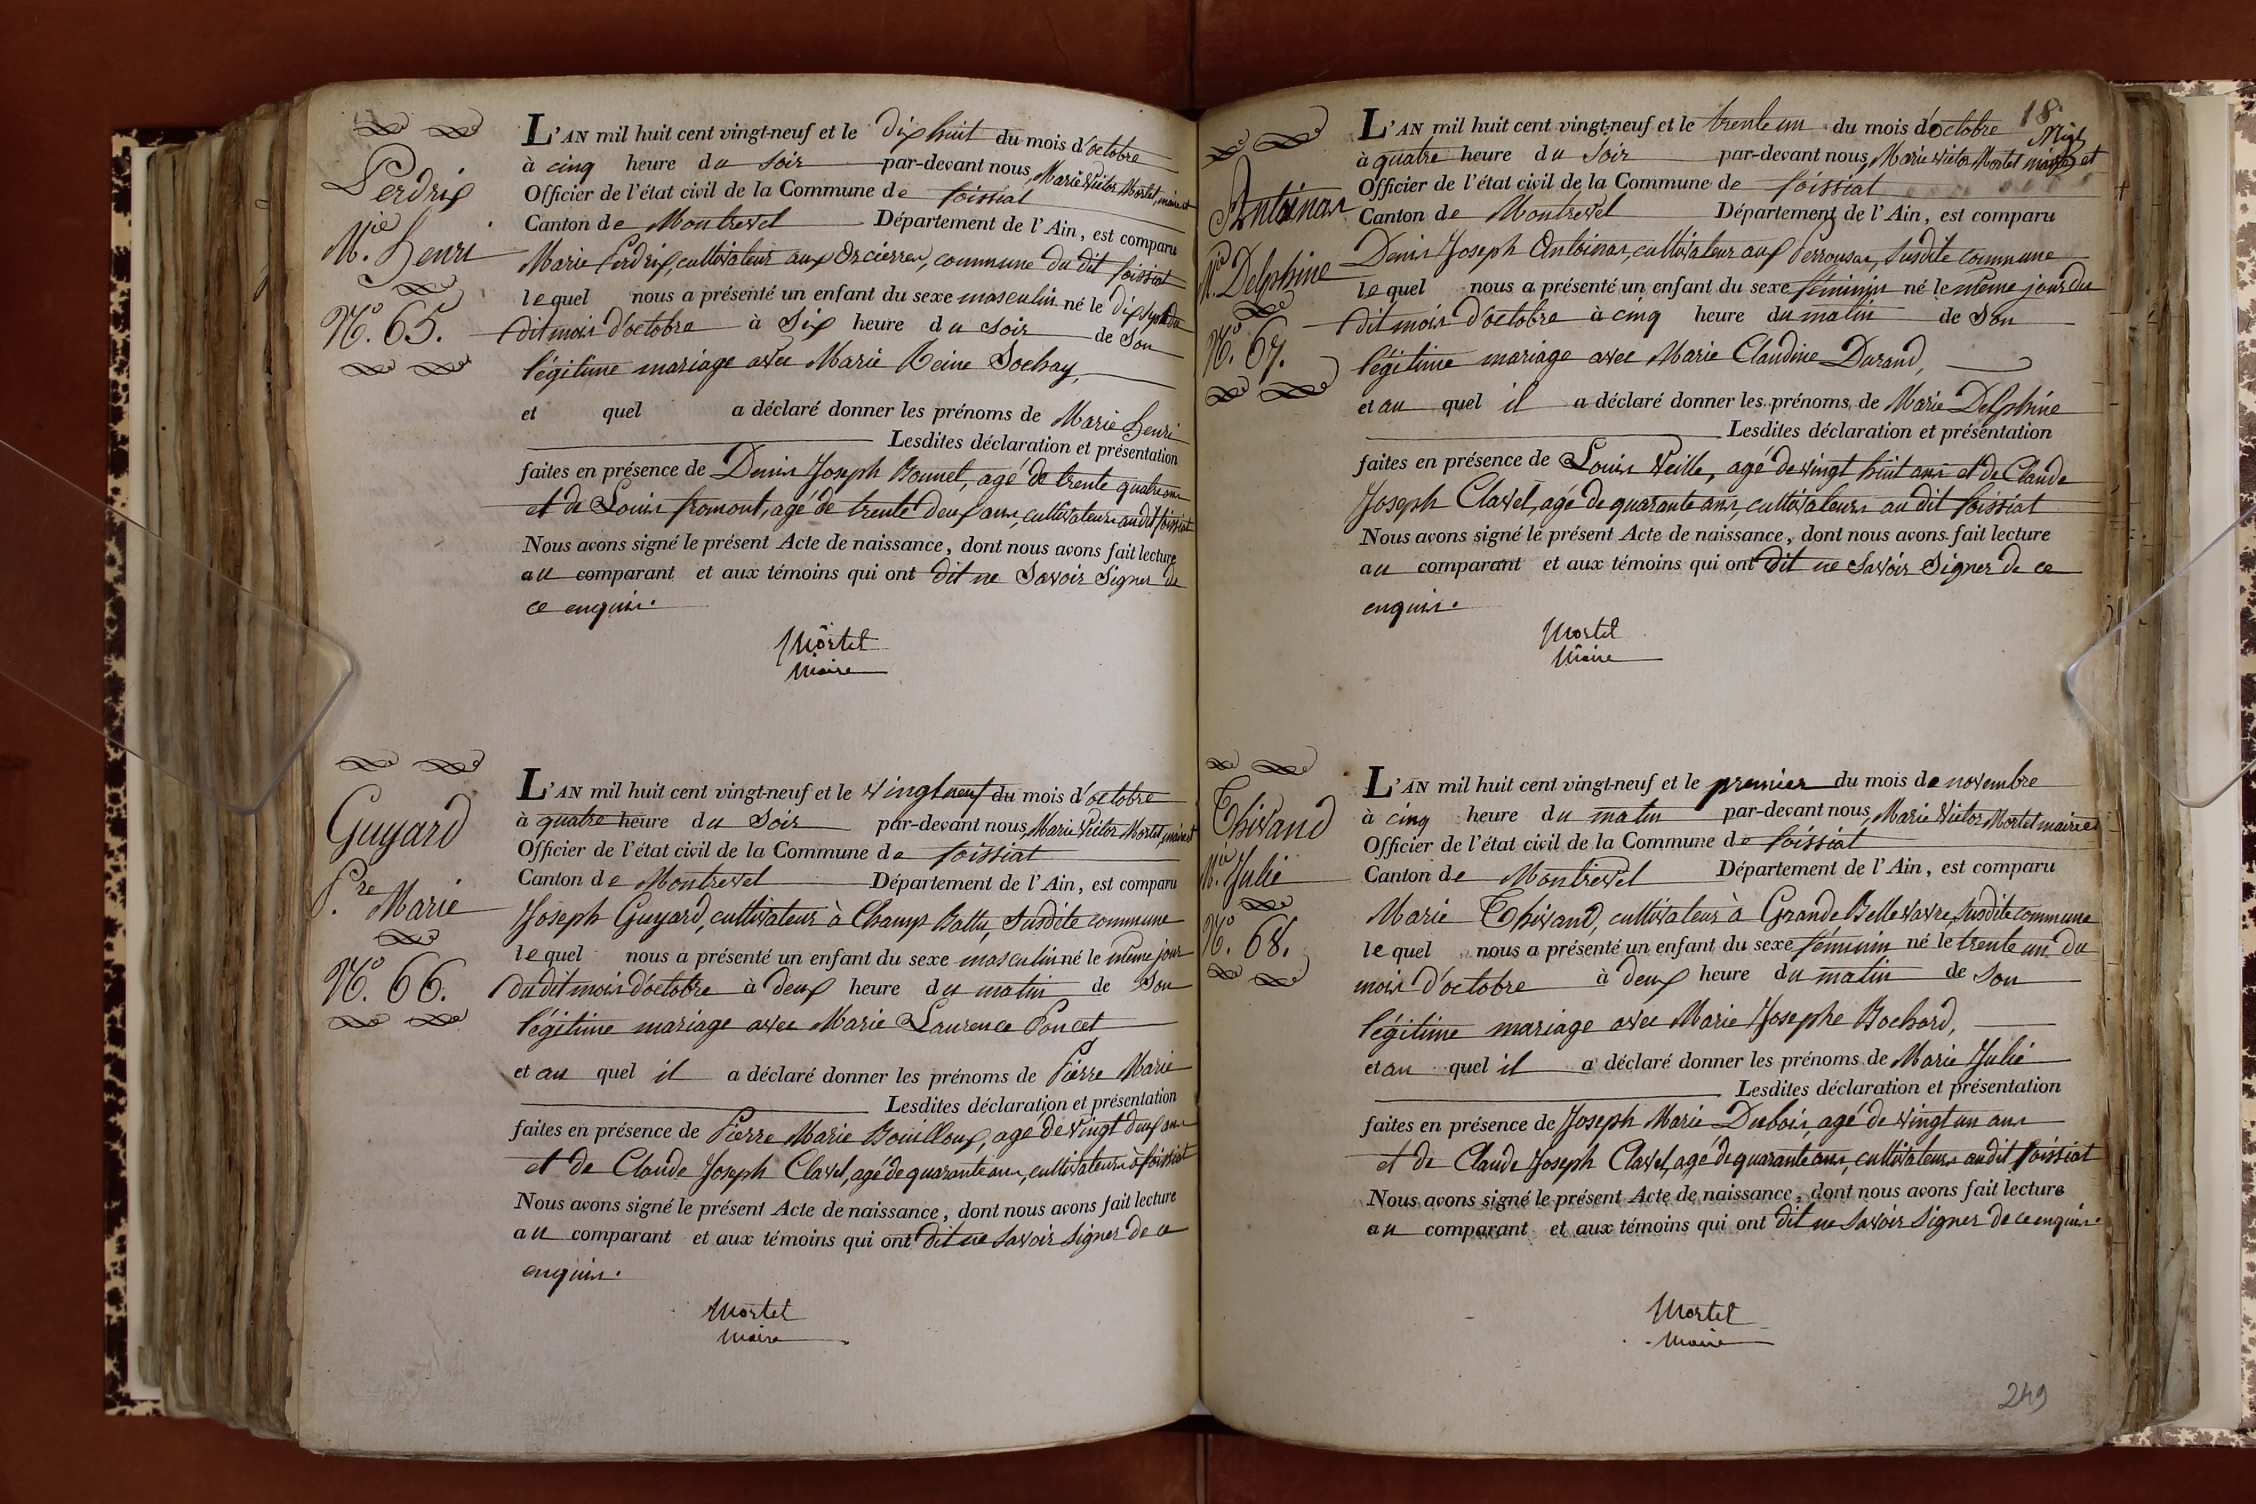 Perdrix
M.ie Henri
N.o 65.
L'AN mil huit cent vingt-neuf et le dix huit du mois d'octobre
à cinq heure du soir par-devant nous, Marie Victor Mortel, maire et
Officier de l'état civil de la Commune de foissiat
Canton de Montrevel Département de l'Ain, est comparu
Marie Perdrix, cultivateur aux Orcierres, commune du dit foissiat
lequel nous a présenté un enfant du sexe masculin né le dix sept du
dit mois d'octobre à Six heure du soir de son
légitime mariage avec Marie Reine Sochay,
et quel a déclaré donner les prénoms de Marie Henri
Lesdites déclaration et présentation
faites en présence de Denis Joseph Bonnet, agé de trente quatre ans
et de Louis fromont, agé de trente deux ans, cultivateurs au dit foissiat
Nous avons signé le présent Acte de naissance, dont nous avons fait lecture
au comparant et aux témoins qui ont dit ne Savoir Signer de
ce enquis.
Mortel
Maire
Guyard
P.re Marie
N.o 66.
L'AN mil huit cent vingt-neuf et le vingt neuf du mois d'octobre
à quatre heure du Soir par-devant nous, Marie Victor Mortel, maire et
Officier de l'état civil de la Commune de foissiat
Canton de Montrevel Département de l'Ain, est comparu
Joseph Guyard, cultivateur à Champ Battu, Susdite commune
lequel nous a présenté un enfant du sexe masculin né le même jour
du dit mois d'octobre à deux heure du matin de Son
légitime mariage avec Marie Laurence Poncet
et au quel il a déclaré donner les prénoms de Pierre Marie
Lesdites déclaration et présentation
faites en présence de Pierre Marie Bouilloux, agé de vingt deux ans
et de Claude Joseph Clavel, agé de quarante ans, cultivateurs à foissiat
Nous avons signé le présent Acte de naissance, dont nous avons fait lecture
au comparant et aux témoins qui ont dit ne savoir signer de ce
enquis.
Mortel
Maire
18
Antoinas
M.ie Delphine
N.o 67.
L'AN mil huit cent vingt-neuf et le trente un du mois d'octobre
à quatre heure du Soir par-devant nous, Marie Victor Mortel maire et
Officier de l'état civil de la Commune de foissiat
Canton de Montrevel Département de l'Ain, est comparu
Denis Joseph Antoinas, cultivateur aux Perrouses, susdite commune
lequel nous a présenté un enfant du sexe féminin né le même jour du
dit mois d'octobre à cinq heure du matin de Son
légitime mariage avec Marie Claudine Durand,
et au quel il a déclaré donner les prénoms de Marie Delphine
Lesdites déclaration et présentation
faites en présence de Louis Veille, agé de vingt huit ans et de Claude
Joseph Clavel, agé de quarante ans, cultivateurs au dit foissiat
Nous avons signé le présent Acte de naissance, dont nous avons fait lecture
au comparant et aux témoins qui ont dit ne Savoir Signer de ce
enquis.
Mortel
Maire
Thivand
M.ie Julie
N.o 68.
L'AN mil huit cent vingt-neuf et le premier du mois de novembre
à cinq heure du matin par-devant nous, Marie Victor Mortel maire et
Officier de l'état civil de la Commune de foissiat
Canton de Montrevel Département de l'Ain, est comparu
Marie Thivand, cultivateur à Grande Bellevavre, susdite commune
lequel nous a présenté un enfant du sexe féminin né le trente un du
mois d'octobre à deux heure du matin de son
légitime mariage avec Marie Josephe Bochard,
et au quel il a déclaré donner les prénoms de Marie Julie
Lesdites déclaration et présentation
faites en présence de Joseph Marie Dubois, agé de vingt un ans
et de Claude Joseph Clavel, agé de quarante ans, cultivateurs au dit foissiat
Nous avons signé le présent Acte de naissance, dont nous avons fait lecture
au comparant et aux témoins qui ont dit ne savoir signer de ce enquis.
Mortel
Maire
249